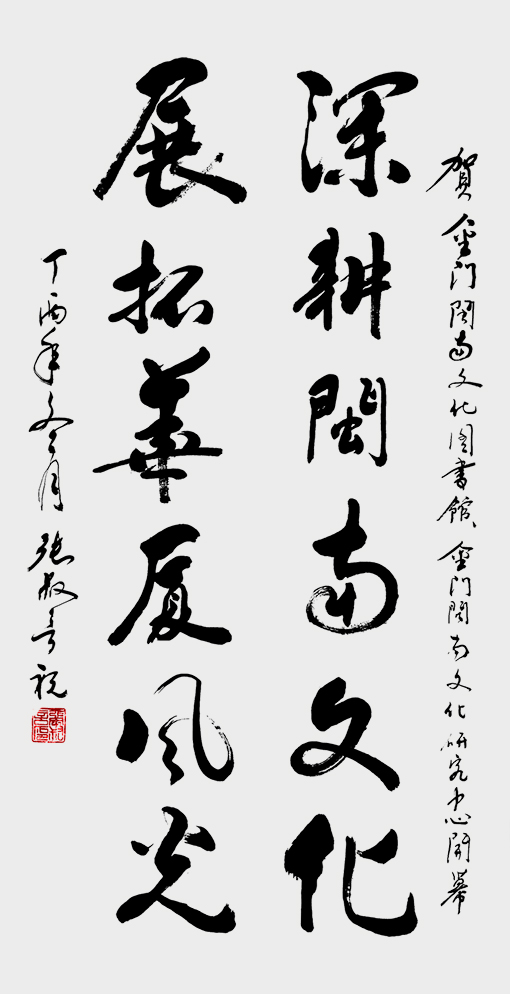 賀金门閩南文化图書館、金门閩南文化研究中心開幕
深耕閩南文化
展拓華厦风光
丁酉年冬月 張
祝